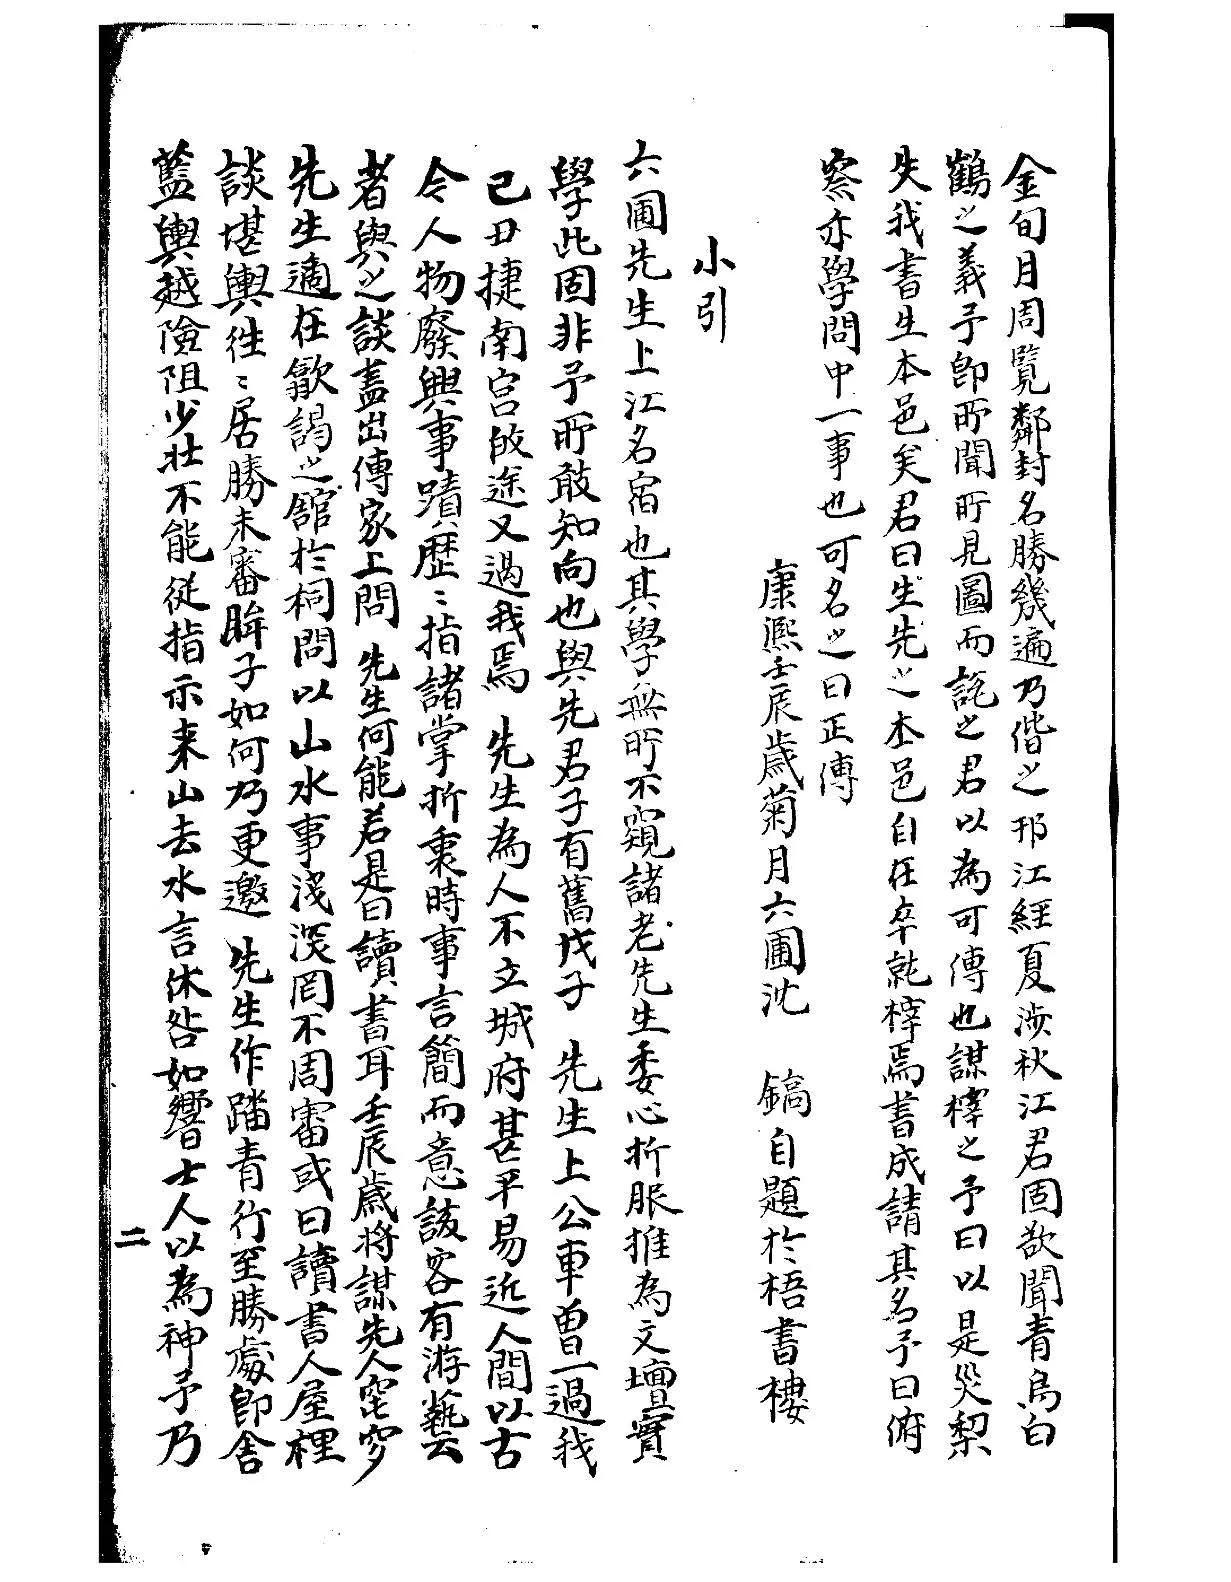 金旬月周覧鄰封名勝幾遍乃偕之邗江經夏涉秋江君固欲聞青烏白
鶴之義予卽所聞所見圖而説之君以為可傳也謀梓之予曰以是災梨
失我書生本邑矣君曰生先之本邑自在卒就梓焉書成請其名予曰俯
察亦學問中一事也可名之曰正傳
康熙壬辰歲菊月六圃沈 鎬自題於梧書樓
小引
六圃先生上江名宿也其學無所不窺諸老先生委心折服推為文壇實
學此固非予所敢知向也與先君子有舊戊子 先生上公車曾一過我
己丑捷南宫啟途又過我焉 先生為人不立城府甚平易近人間以古
今人物廢興事蹟歷〻指諸掌折衷時事言簡而意該客有游藝云
者與之談盖出傳家上問 先生何能若是曰讀書耳壬辰歲将謀先人窀穸
先生適在歙謁之舘於祠問以山水事淺深罔不周審或曰讀書人屋裡
談堪輿徃〻居勝未審眸子如何乃更邀 先生作踏青行至勝處卽舍
藍輿越險阻少壯不能從指示来山去水言休咎如響士人以為神予乃
二